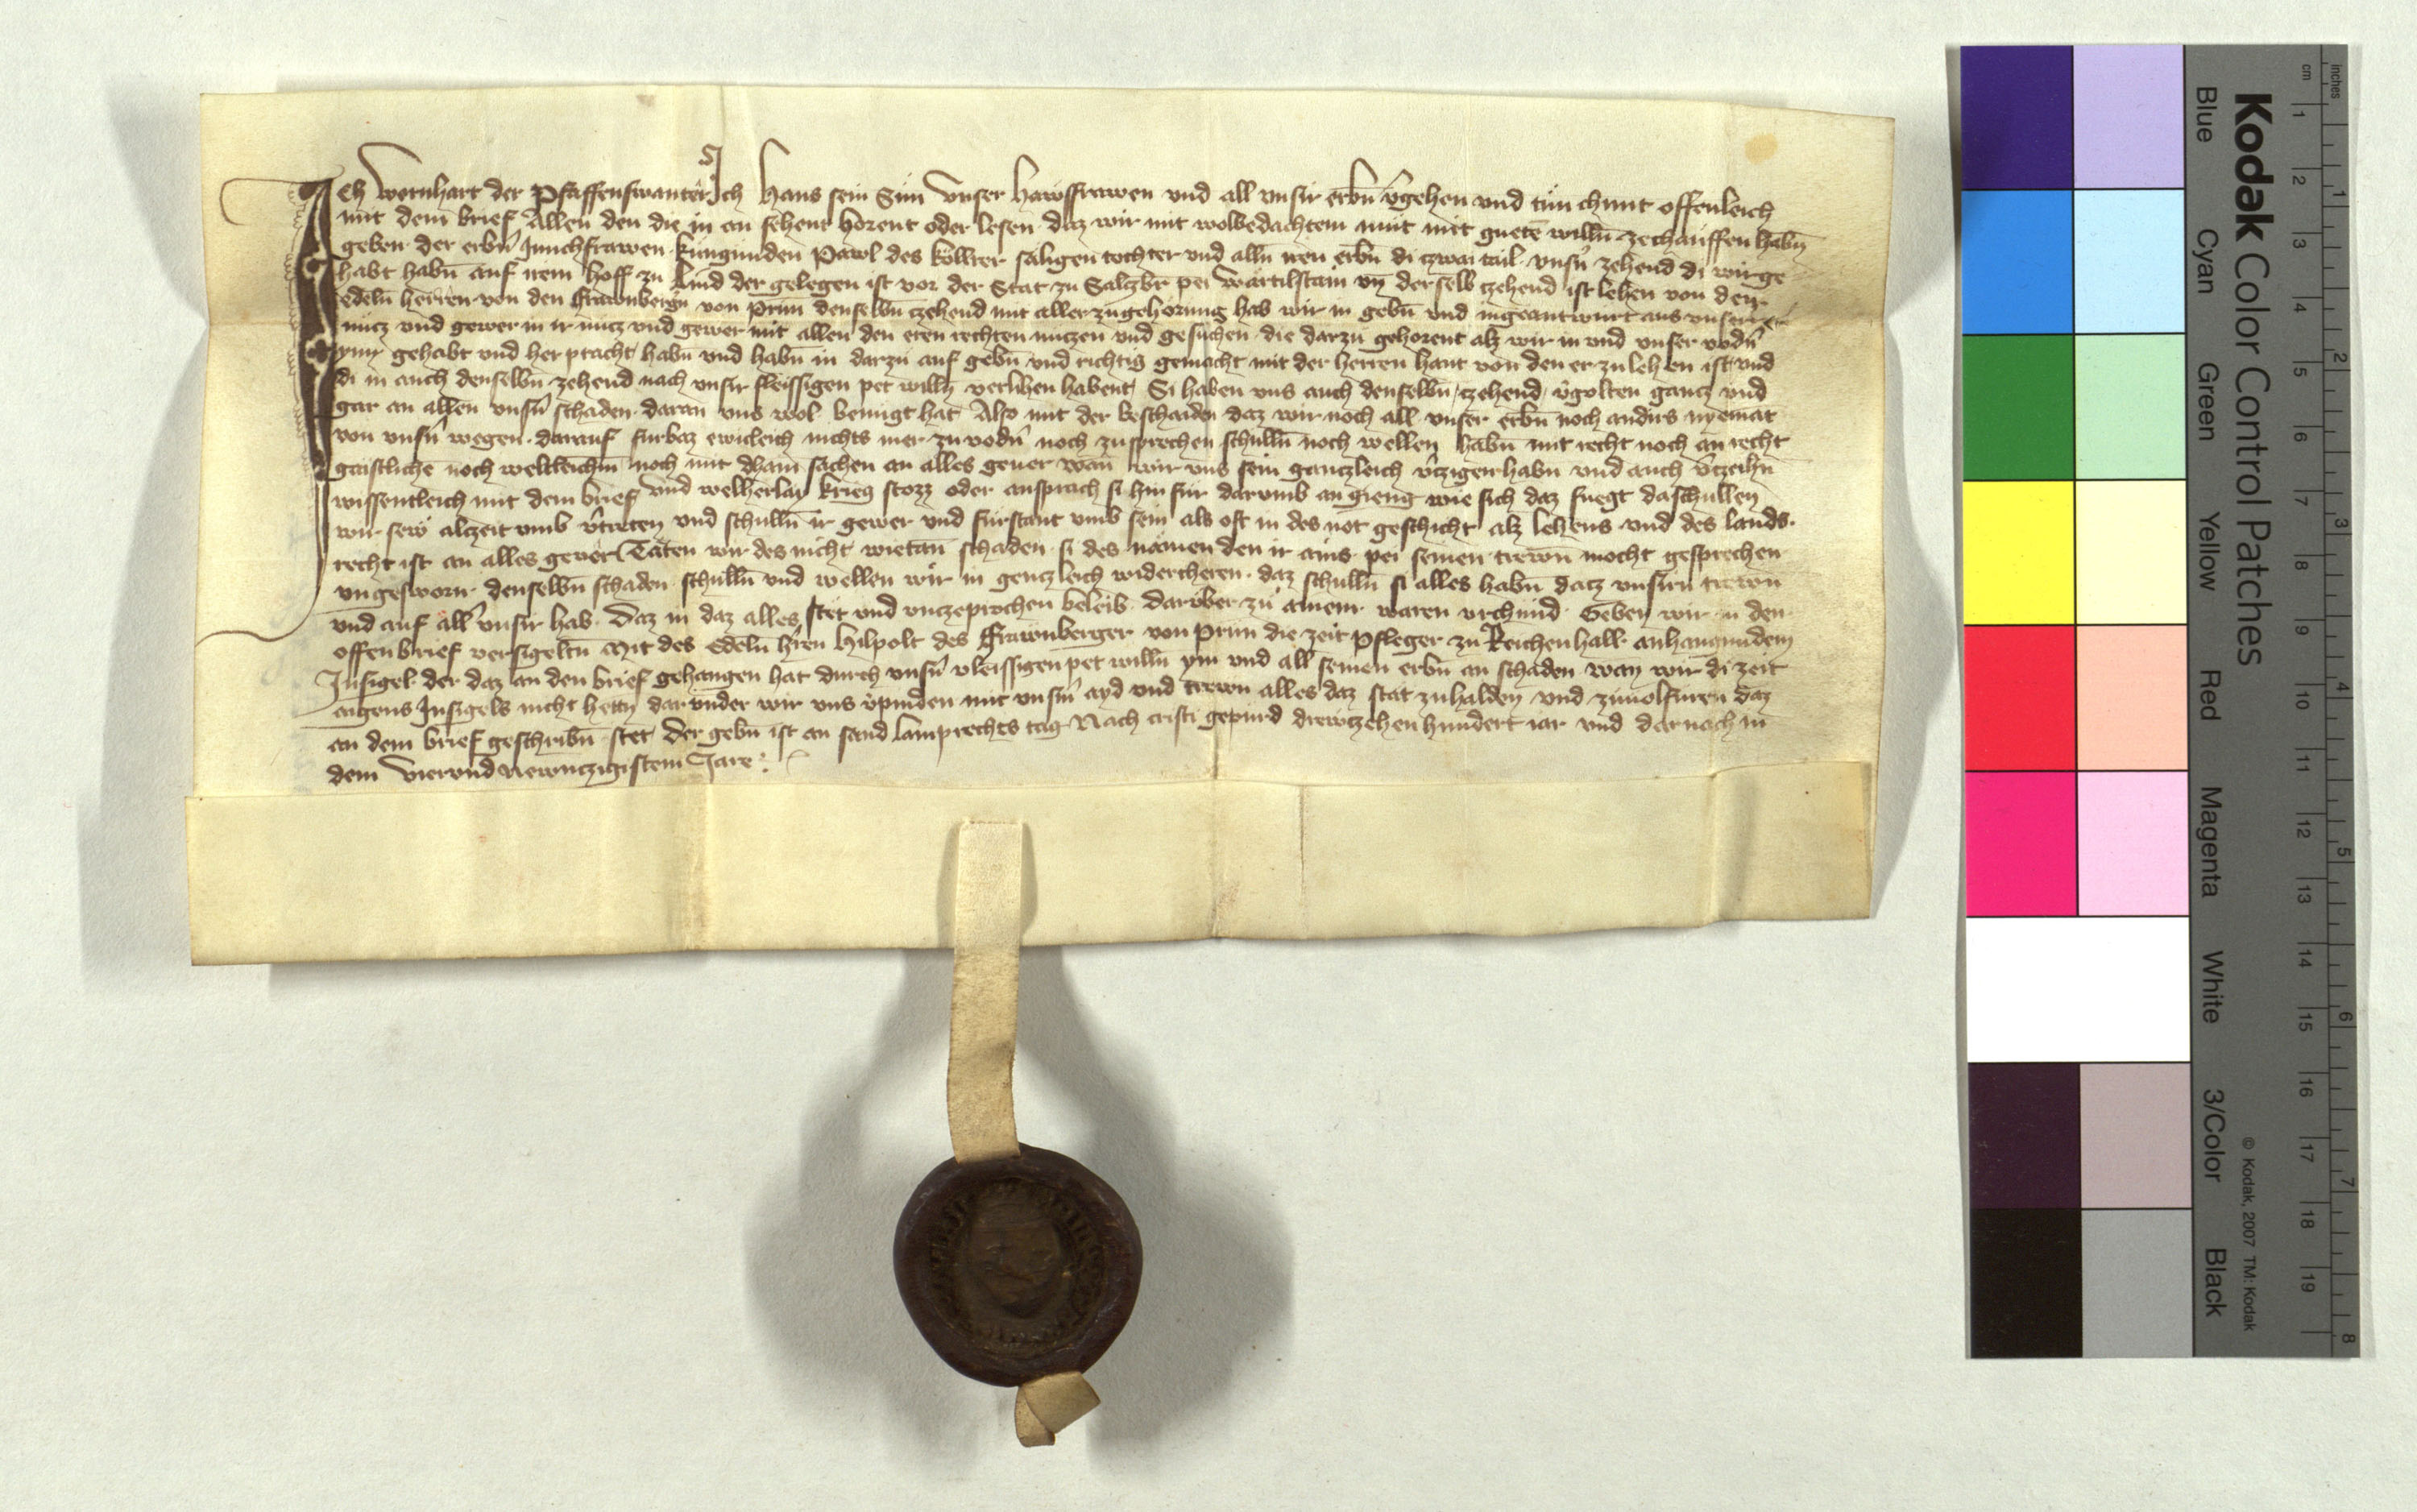 Ich Wernhart der Pfaffenswanter Ich Hans sein Sun Unser Hawsfrawen und all unsir erbn̄ v̂gehen und tun chunt offenleich
mit dem brief Allen den die in an sehent horent oder lesen daz wir mit wolbedachtem mut mit guetē willn̄ ze chauffen habn̄
geben der erbn̄ Junchfrawen kungunden Pawl des kollrer saligen tochter und alln̄ iren erbn̄ di czwai tail unsn̂ zehend di wir ge
habt habn̄ auf irem hoff zu Lind der gelegen ist vor der Stat zu Salczbr̄ pei Wartilstain un̄ derselb czehend ist lehen von den
edeln̄ herren von den Frawnbergn̂ von Prun denselbn̄ czehend mit aller zugehorung hab wir in gebn̄ und ingeantwurt aus unsrer
nucz und gewer in ir nucz und gewer mit allen den eren rechten nuczen und gesuchen die darzu gehorent alz wir in und unser vodn̂
ynn gehabt und her pracht habn̄ und habn̄ in darzu auf gebn̄ und richtig gemacht mit der herren hant von den er zu lehen ist und
di in auch denselbn̄ zehend nach unsir fleissigen pet willn̄ verlihen habent Si haben uns auch denselbn̄ czehend v̂golten gancz und
gar an allen unsn̂ schaden daran uns wol benugt hat Also mit der beschaiden daz wir noch all unser erbn̄ noch anders nyemat
von unsn̂ wegen darauf furbaz ewicleich nichts mer zu vodn̂ noch zu sprechen schulln̄ noch wellen habn̄ mit recht noch an recht
gaistlichē noch weltleichm̄ noch mit dhain sachen an alles gever wan̄ wir uns sein ganczleich v̂czigen habn̄ und auch v̂czeihn̄
wissentleich mit dem brief und welherlay krieg stozz oder ansprach si hin fur darumb an gieng wie sich daz fuegt da schullen
wir sew alczeit umb v̂treten und schulln̄ ir gewer und furstant umb sein als oft in des not geschicht alz lehens und des lands
recht ist an alles gever Taten wir des nicht wietan̄ schaden si des nœmen den ir ains pei seinen trewn̄ mocht gesprechen
ungesworn denselbn̄ schaden schulln̄ und wellen wir in genczleich widercheren daz schulln̄ si alles habn̄ datz unsirn trewn̄
und auf all unsir hab Daz in daz alles stet und unczeprochen beleib darüber zu ainem waren urchund Geben wir in den
offen brief versigeltn̄ Mit des Edeln̄ hr̂en Hilpolt des Frawnberger von Prun die zeit Pfleger zu Reichenhall anhangundem
Insigel der daz an den brief gehangen hat durch unsn̂ vleissigen pet willn̄ ym und all seinen erbn̄ an schaden wan wir di zeit
aigens Insigels nicht hettn̄ dar under wir uns v̂pinden mit unsn̂ ayd und trewn alles daz stat zu halden und zuuolfuren daz
an dem brief geschribn̄ stet Der gebn̄ ist an sand Lamprechts tag Nach cristi gepurd drewczehen hundert iar und darnach in
dem vierundnewnczigistem Jare
Kodak Color Control Patches
© Kodak, 2007 TM: Kodak
Blue Cyan Green Yellow Red Magenta White 3/Color Black
cm 1 2 3 4 5 6 7 8 9 10 11 12 13 14 15 16 17 18 19
inches 1 2 3 4 5 6 7 8